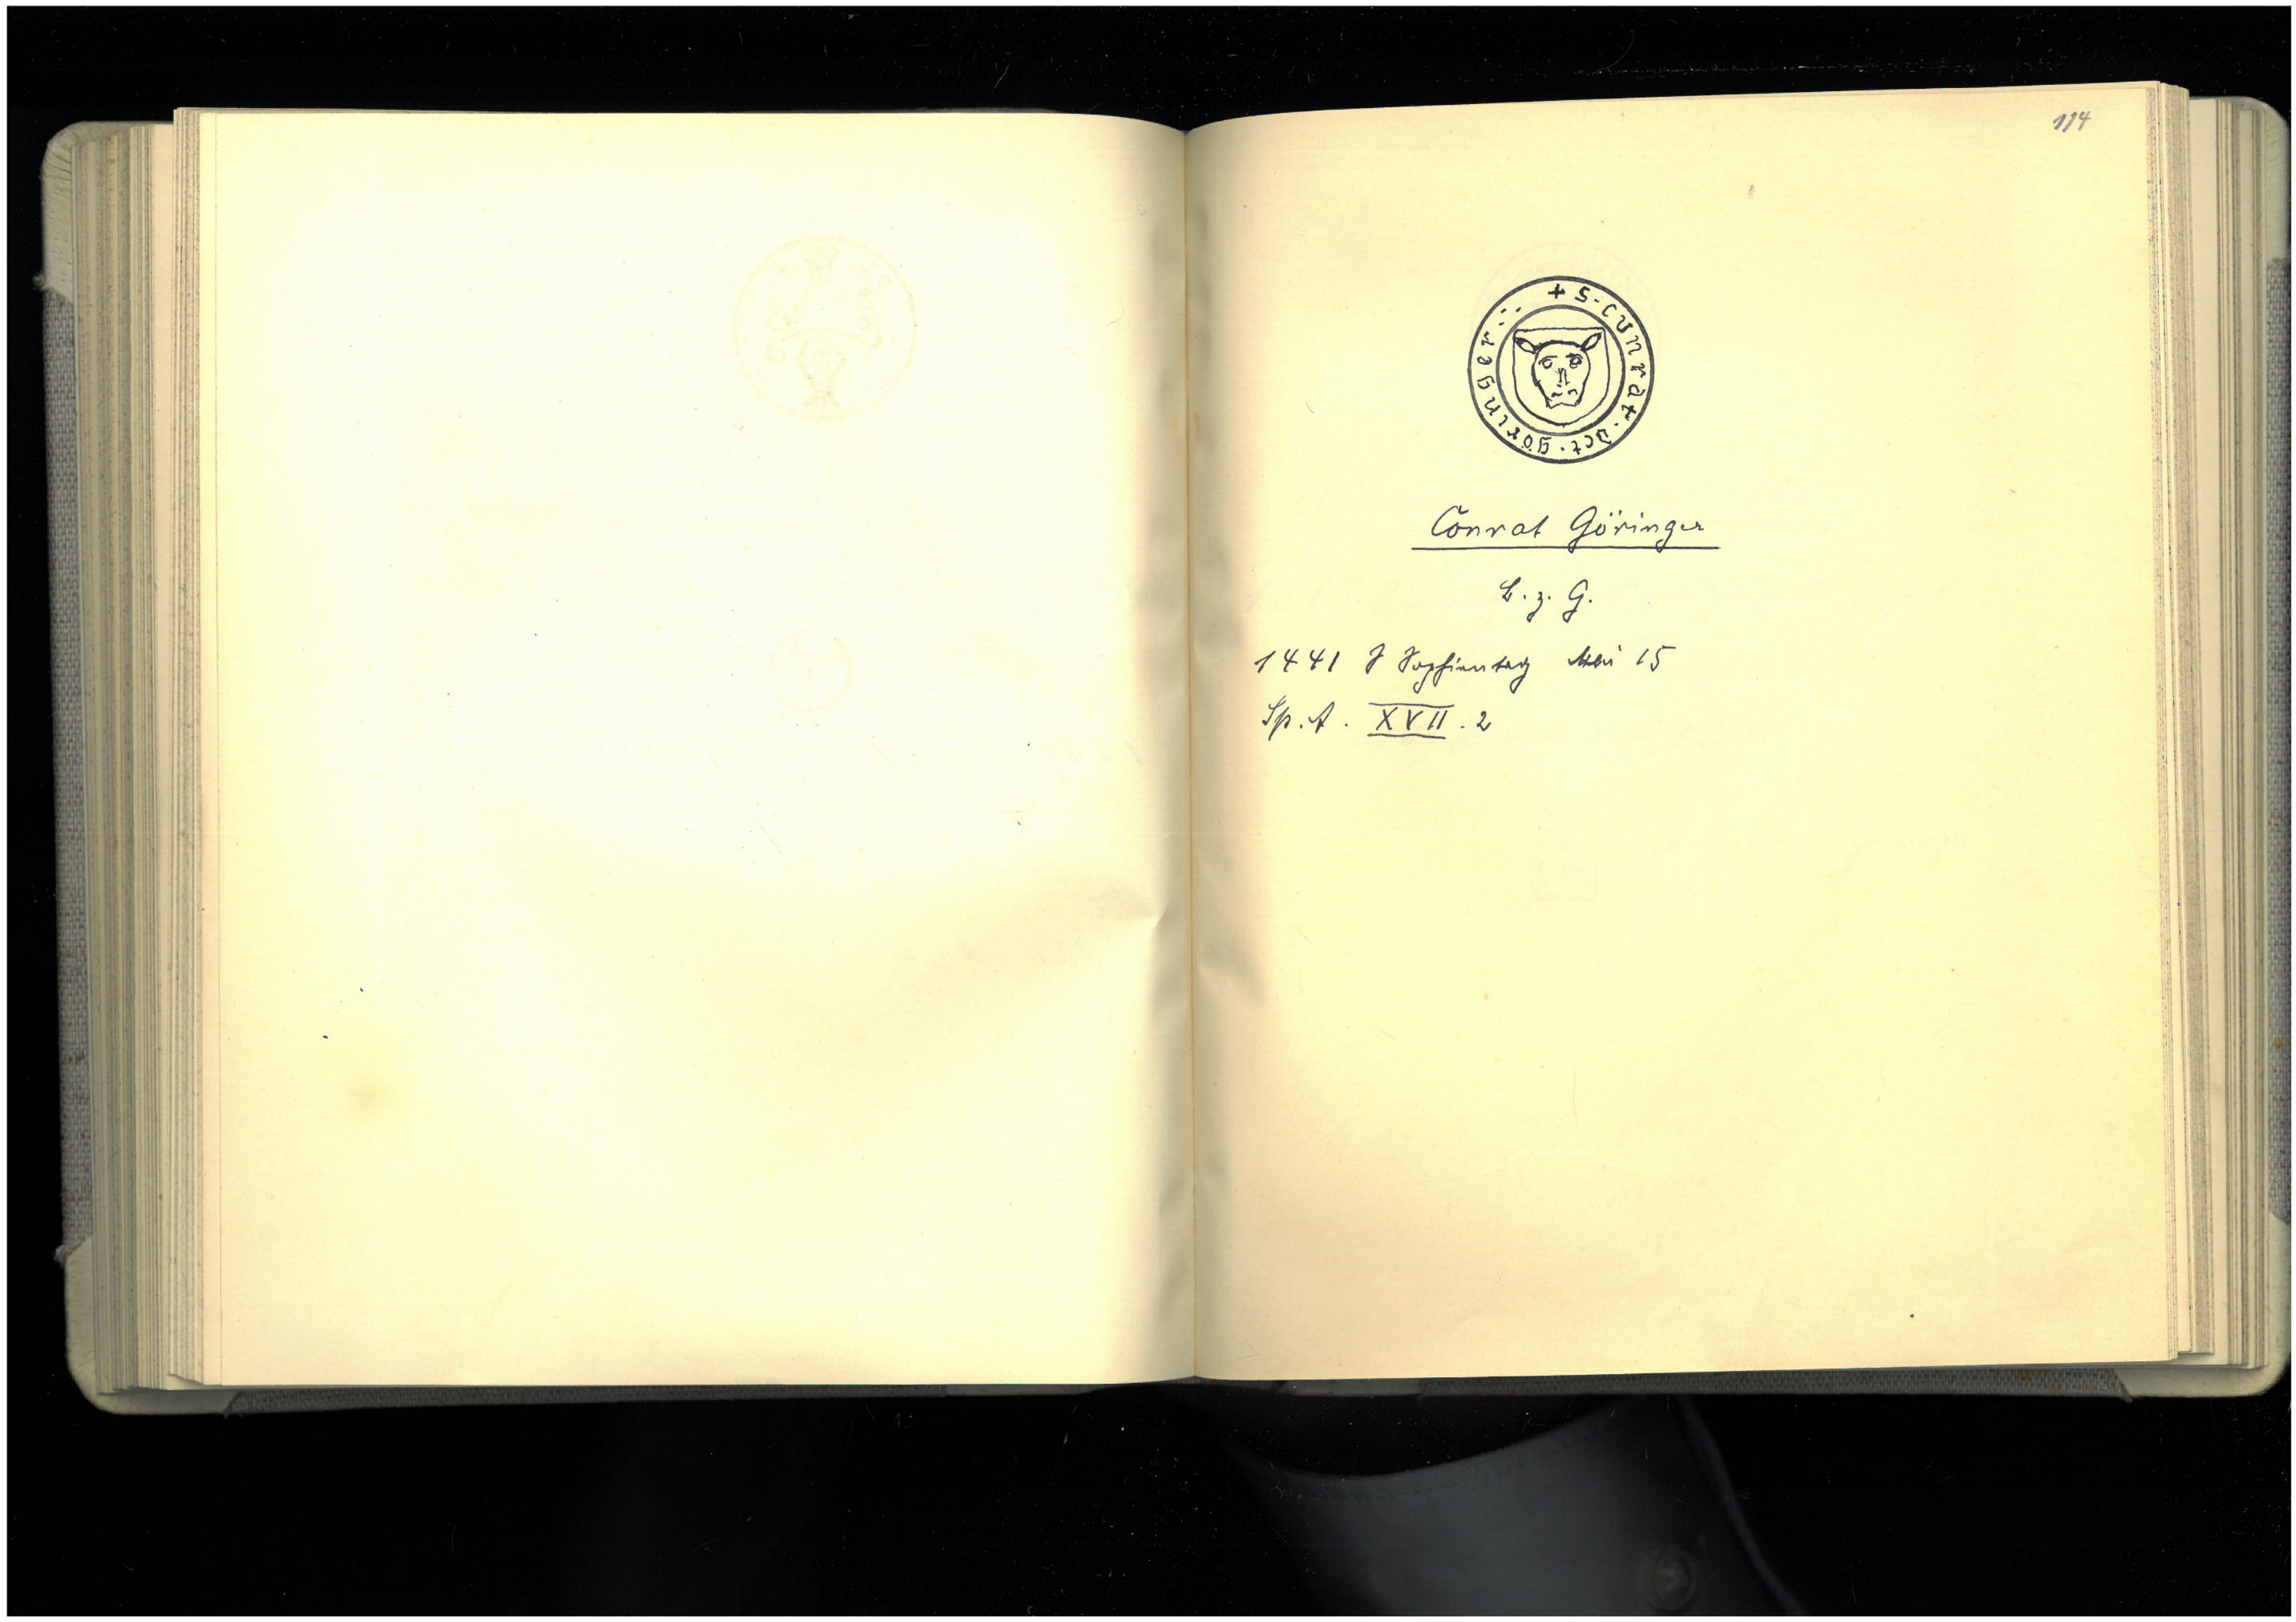 114
+ S · cunrat · dct · göringer
Conrat Göringer
B. z. G.
1441 S Sophientag Mai 15
Sp. A. XVII. 2